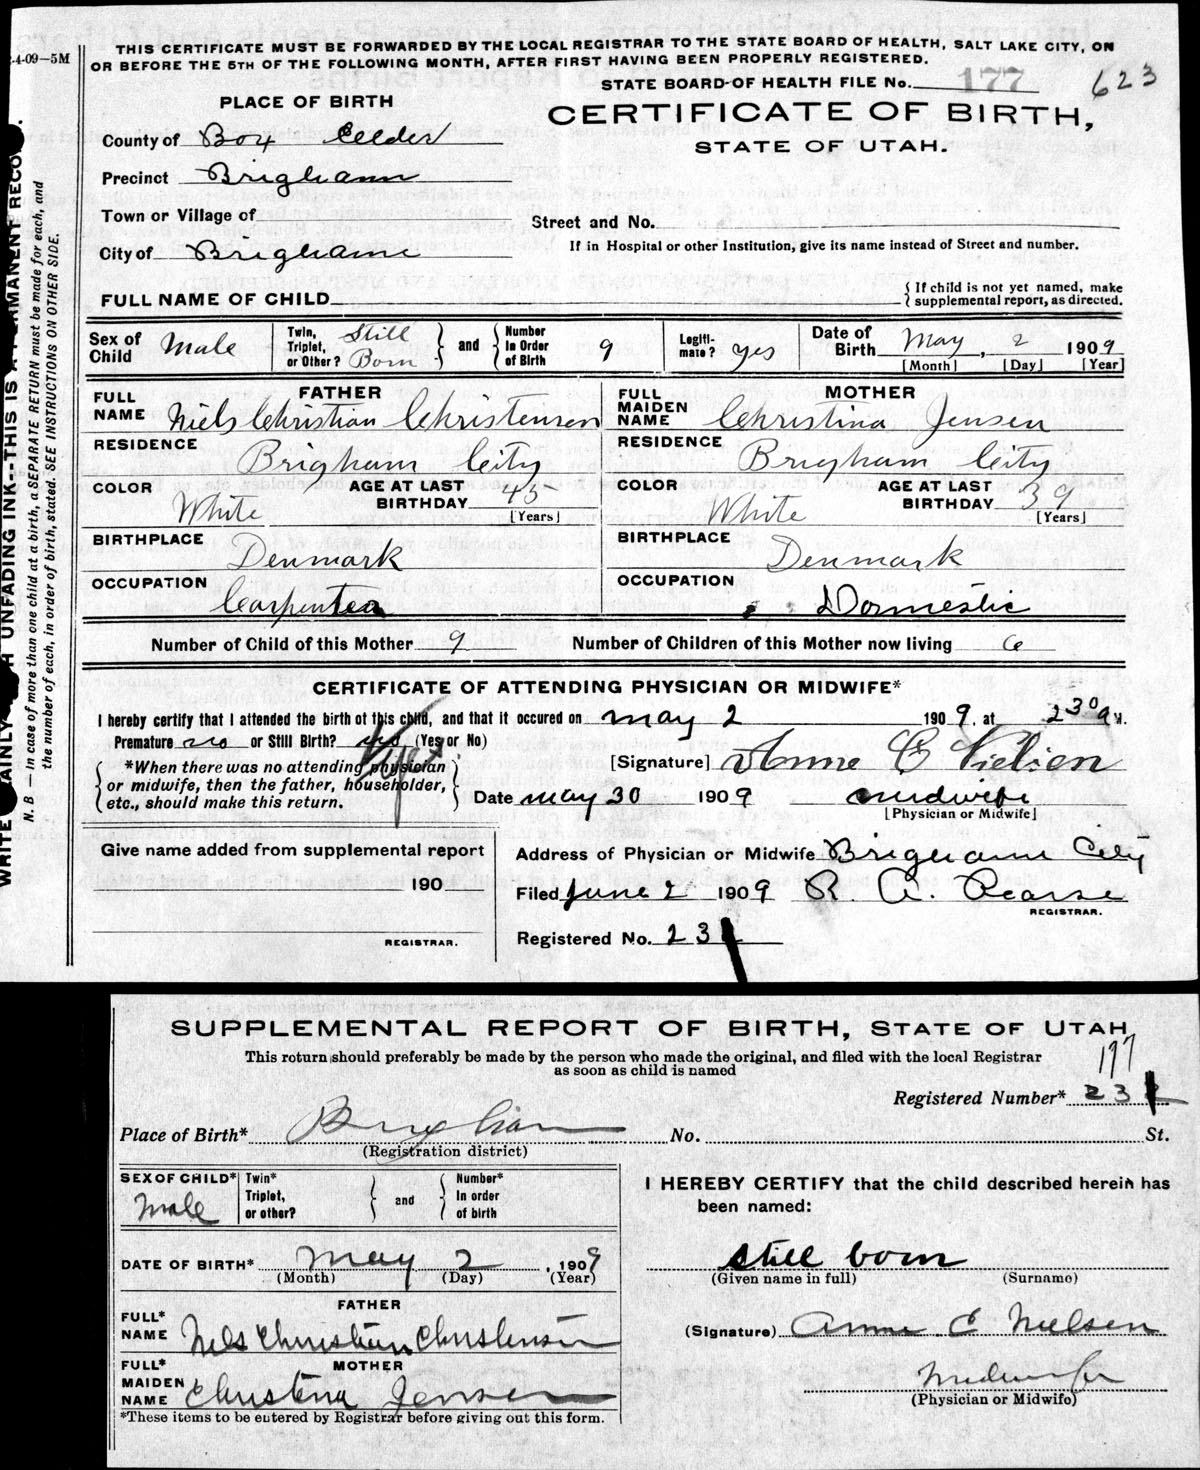 2-4-09—5M
THIS CERTIFICATE MUST BE FORWARDED BY THE LOCAL REGISTRAR TO THE STATE BOARD OF HEALTH, SALT LAKE CITY, ON
OR BEFORE THE 5TH OF THE FOLLOWING MONTH, AFTER FIRST HAVING BEEN PROPERLY REGISTERED.
STATE BOARD OF HEALTH FILE No. 177 623
PLACE OF BIRTH
CERTIFICATE OF BIRTH,
STATE OF UTAH.
County of Box Elder
Precinct Brigham
Town or Village of
Street and No.
City of Brigham
If in Hospital or other Institution, give its name instead of Street and number.
FULL NAME OF CHILD
{ If child is not yet named, make
supplemental report, as directed.
Sex of Child Male
Twin, Triplet, or Other? Still Born } and { Number In Order of Birth 9
Legiti-mate? yes
Date of Birth May, 2 1909
[Month] [Day] [Year]
FATHER
FULL NAME Niels Christian Christensen
RESIDENCE Brigham City
COLOR White
AGE AT LAST BIRTHDAY 45
[Years]
BIRTHPLACE Denmark
OCCUPATION Carpenter
MOTHER
FULL MAIDEN NAME Christina Jensen
RESIDENCE Brigham City
COLOR White
AGE AT LAST BIRTHDAY 39
[Years]
BIRTHPLACE Denmark
OCCUPATION Domestic
Number of Child of this Mother 9
Number of Children of this Mother now living 6
CERTIFICATE OF ATTENDING PHYSICIAN OR MIDWIFE*
I hereby certify that I attended the birth of this child, and that it occured on may 2 1909. at 2 30 a M.
Premature no or Still Birth? yes (Yes or No)
[Signature] Anne C Nielsen
{ *When there was no attending physician
or midwife, then the father, householder,
etc., should make this return. }
Date may 30 1909 midwife
[Physician or Midwife]
Give name added from supplemental report
190
REGISTRAR.
Address of Physician or Midwife Brigham City
Filed June 2 1909 R. A. Pearse
REGISTRAR.
Registered No. 23
WRITE PLAINLY WITH UNFADING INK--THIS IS A PERMANENT RECORD.
N. B — In case of more than one child at a birth, a SEPARATE RETURN must be made for each, and
the number of each, in order of birth, stated. SEE INSTRUCTIONS ON OTHER SIDE.
SUPPLEMENTAL REPORT OF BIRTH, STATE OF UTAH
This return should preferably be made by the person who made the original, and filed with the local Registrar
as soon as child is named
197
Registered Number* 23
Place of Birth* Brigham No. St.
(Registration district)
SEX OF CHILD* Male
Twin* Triplet, or other? } and { Number* In order of birth
DATE OF BIRTH* May 2, 1909
(Month) (Day) (Year)
FATHER
FULL* NAME Nels Christian Christensen
MOTHER
FULL* MAIDEN NAME Christena Jensen
*These items to be entered by Registrar before giving out this form.
I HEREBY CERTIFY that the child described herein has
been named:
still born
(Given name in full) (Surname)
(Signature) Anne C Nielsen
Midwife
(Physician or Midwife)